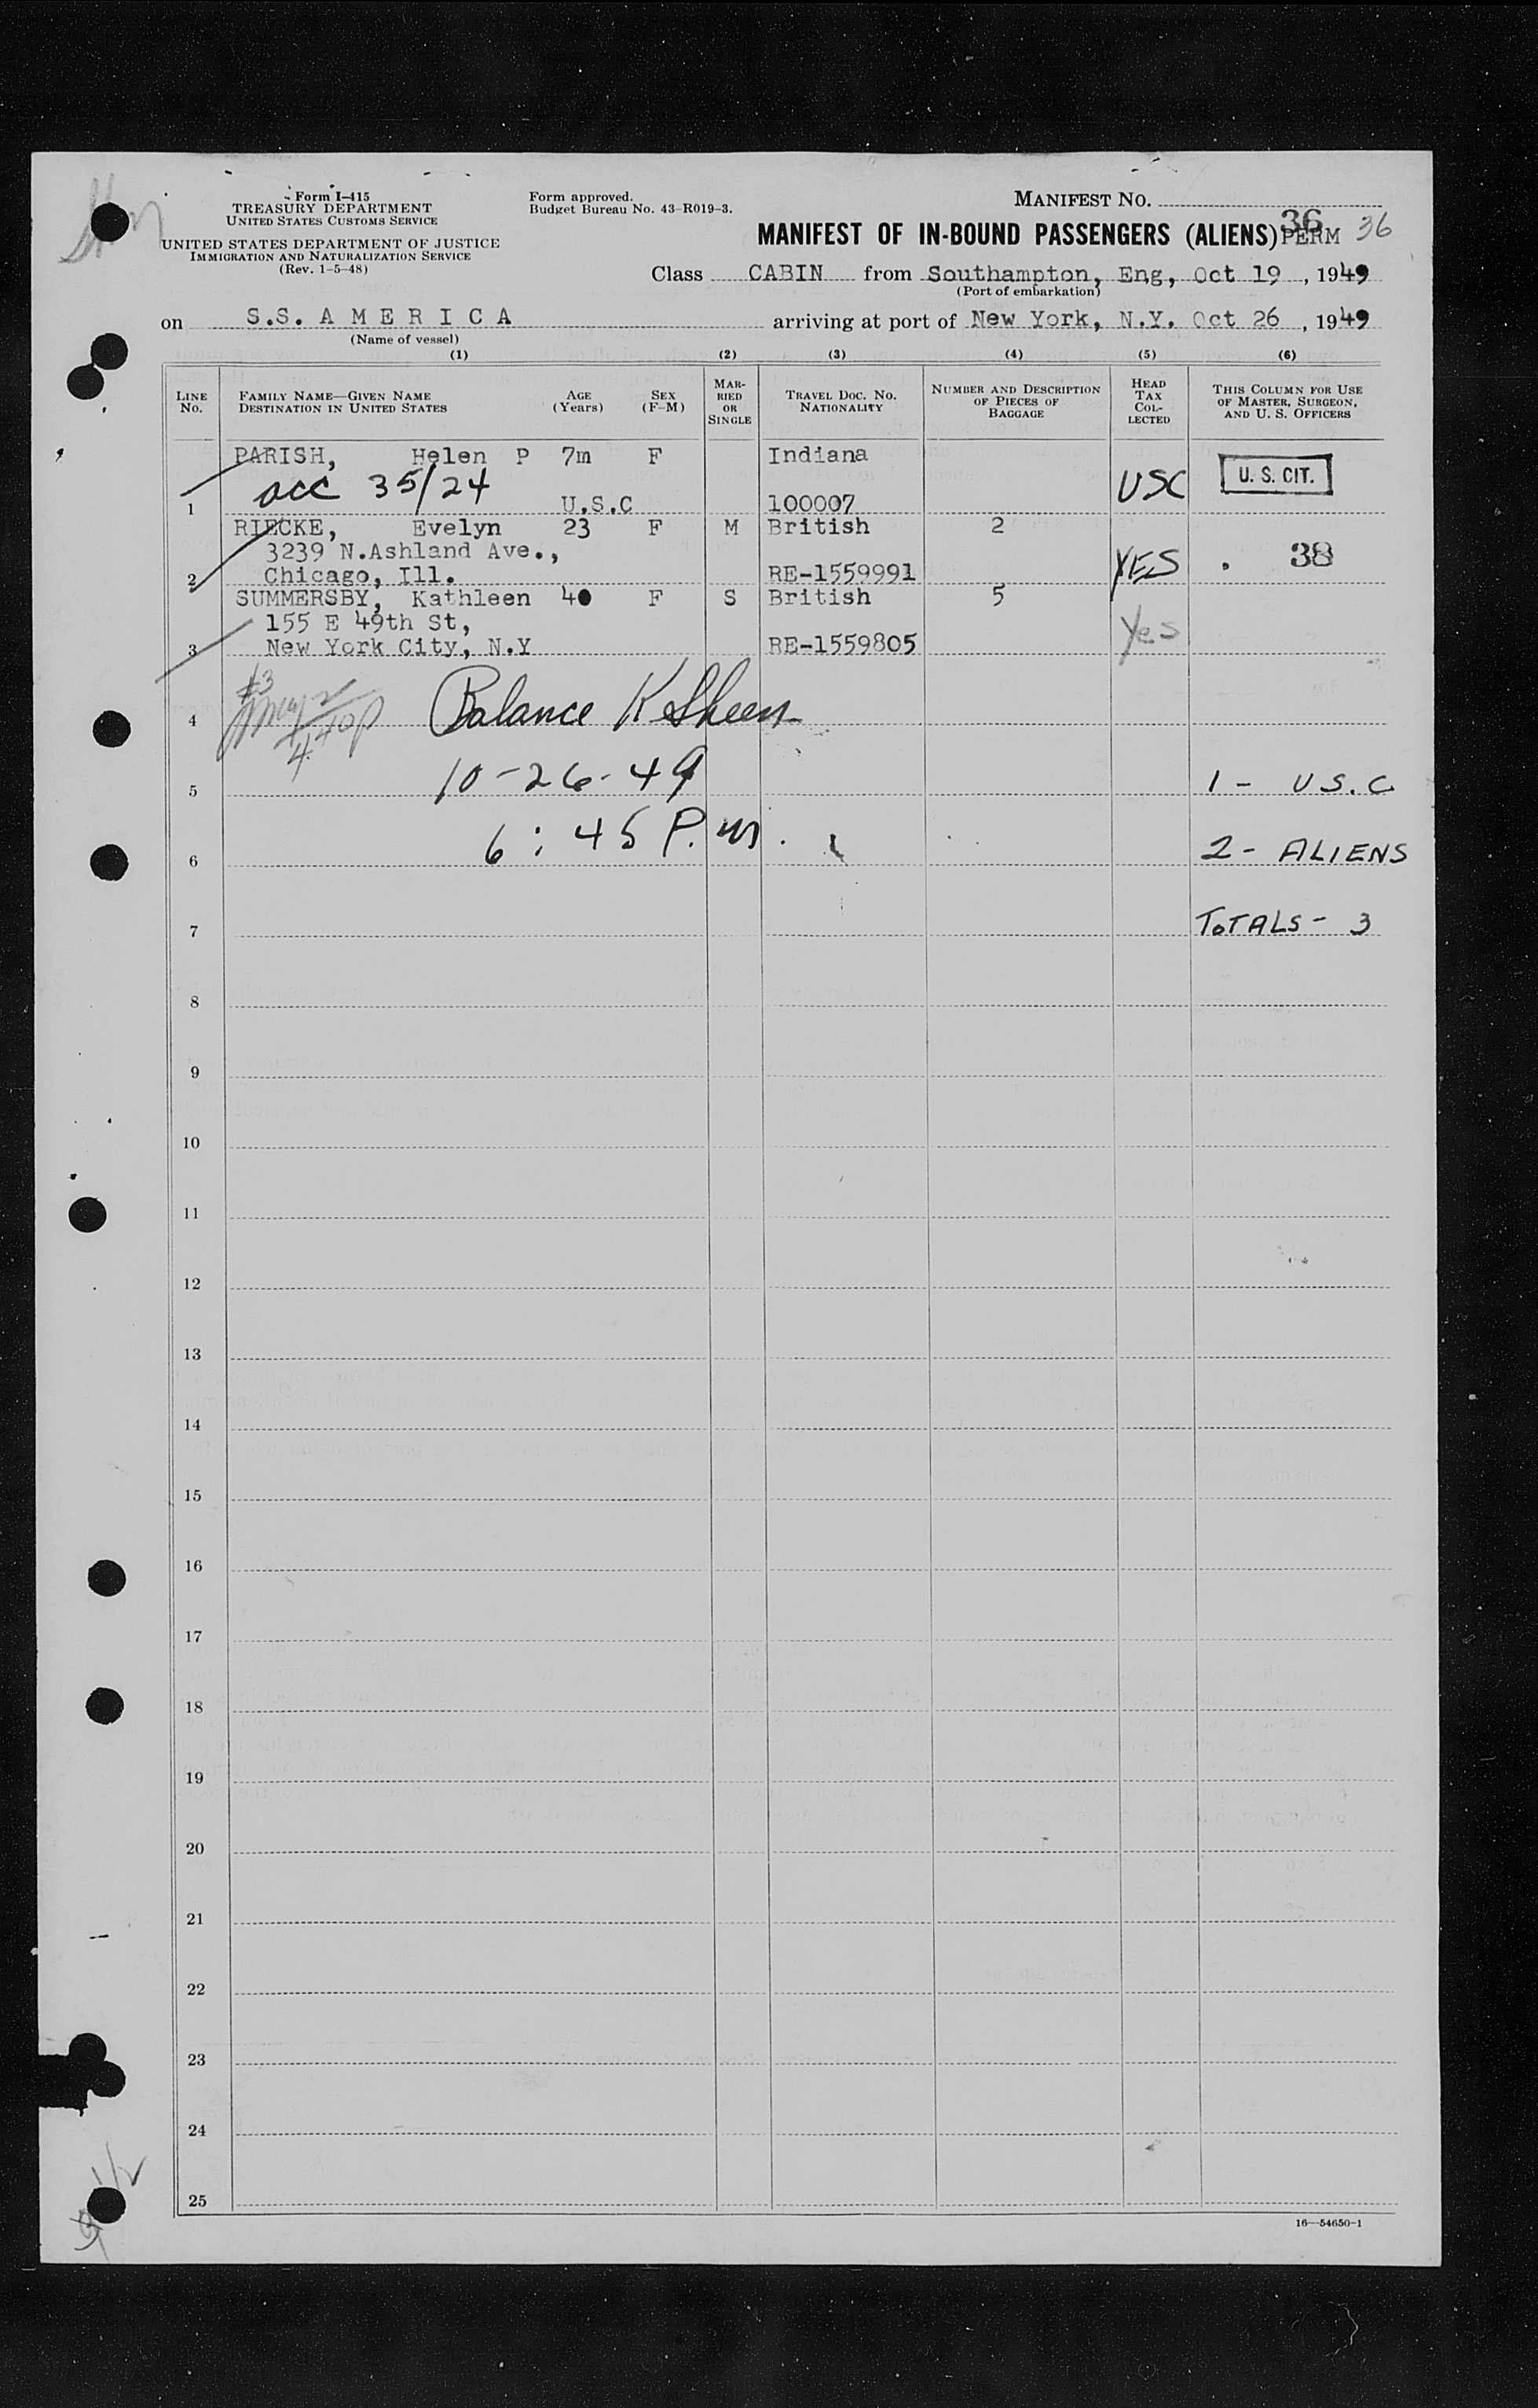 Form I-415
TREASURY DEPARTMENT
UNITED STATES CUSTOMS SERVICE
UNITED STATES DEPARTMENT OF JUSTICE
IMMIGRATION AND NATURALIZATION SERVICE
(Rev. 1-5-48)
Form approved.
Budget Bureau No. 43-R019-3.
MANIFEST NO.
MANIFEST OF IN-BOUND PASSENGERS (ALIENS) 36 PERM 36
Class CABIN from Southampton, Eng, Oct 19, 1949
(Port of embarkation)
on S.S. A M E R I C A arriving at port of New York, N.Y. Oct 26, 1949
(Name of vessel)
(1) (2) (3) (4) (5) (6)
LINE NO. FAMILY NAME—GIVEN NAME DESTINATION IN UNITED STATES AGE (Years) SEX (F-M) MARRIED OR SINGLE TRAVEL DOC. NO. NATIONALITY NUMBER AND DESCRIPTION OF PIECES OF BAGGAGE HEAD TAX COLLECTED THIS COLUMN FOR USE OF MASTER, SURGEON, AND U. S. OFFICERS
PARISH, Helen P 7m F Indiana
acc 35/24 USC U. S. CIT.
1 U.S.C 100007
RIECKE, Evelyn 23 F M British 2
3239 N.Ashland Ave., YES 38
2 Chicago, Ill. RE-1559991
SUMMERSBY, Kathleen 40 F S British 5
155 E 49th St, Yes
3 New York City, N.Y RE-1559805
#3
4 Balance K Sheen
5 10-26-49 1 - U S. C
6 6:45 P.m. 2 - ALIENS
7 TOTALS - 3
8
9
10
11
12
13
14
15
16
17
18
19
20
21
22
23
24
25
16—54650-1